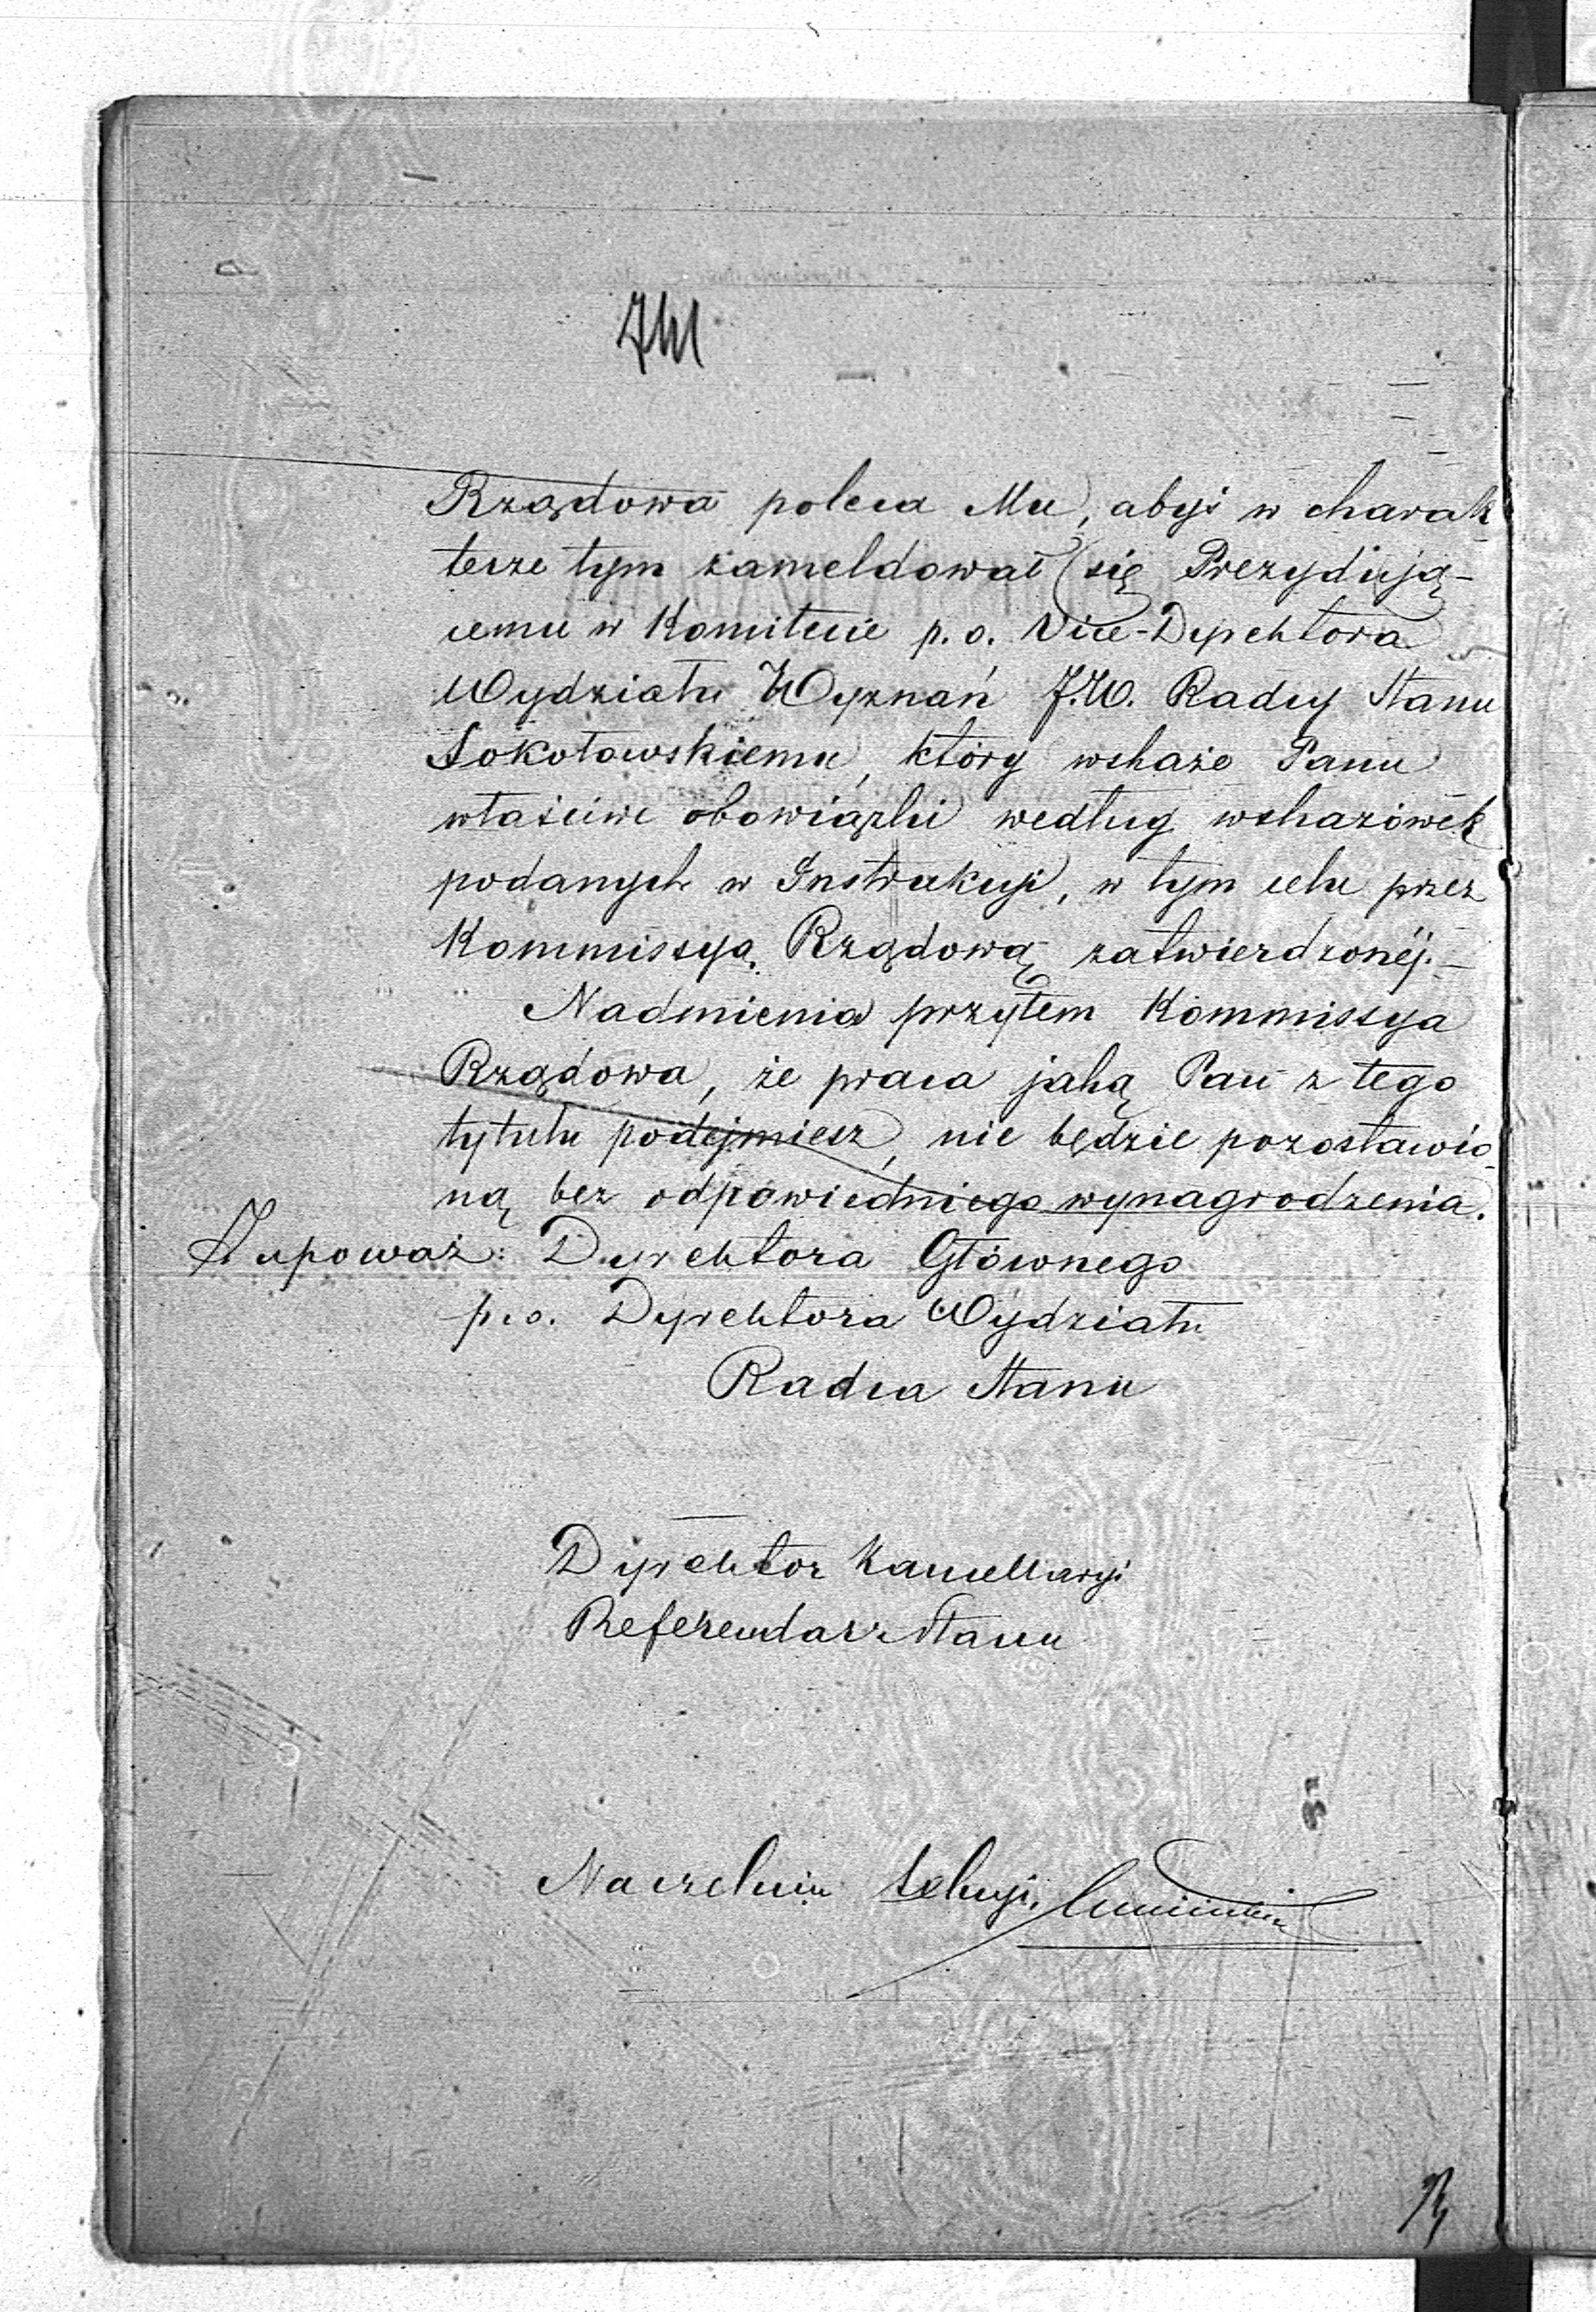 Rządowa poleca Mu, abyś w charak
terze tym zameldował się Prezydują-
cemu w Komitecie p. o. Vice-Dyrektora
Wydziału Wyznań J.W. Radcy Stanu
Sokołowskiemu, który wskaże Panu
właściwe obowiązki według wskazówek
podanych w Instrukcyi, w tym celu przez
Kommissyą Rządową zatwierdzonéj.—
Nadmienia przytem Kommissya
Rządowa, że praca jaką Pan z tego
tytułu podejmiesz, nie będzie pozostawio-
ną bez odpowiedniego wynagrodzenia.
Z upoważ: Dyrektora Głównego
p. o. Dyrektora Wydziału
Radca Stanu
Dyrektor Kancellaryi
Referendarz Stanu
Naczelnik Sekcyi,